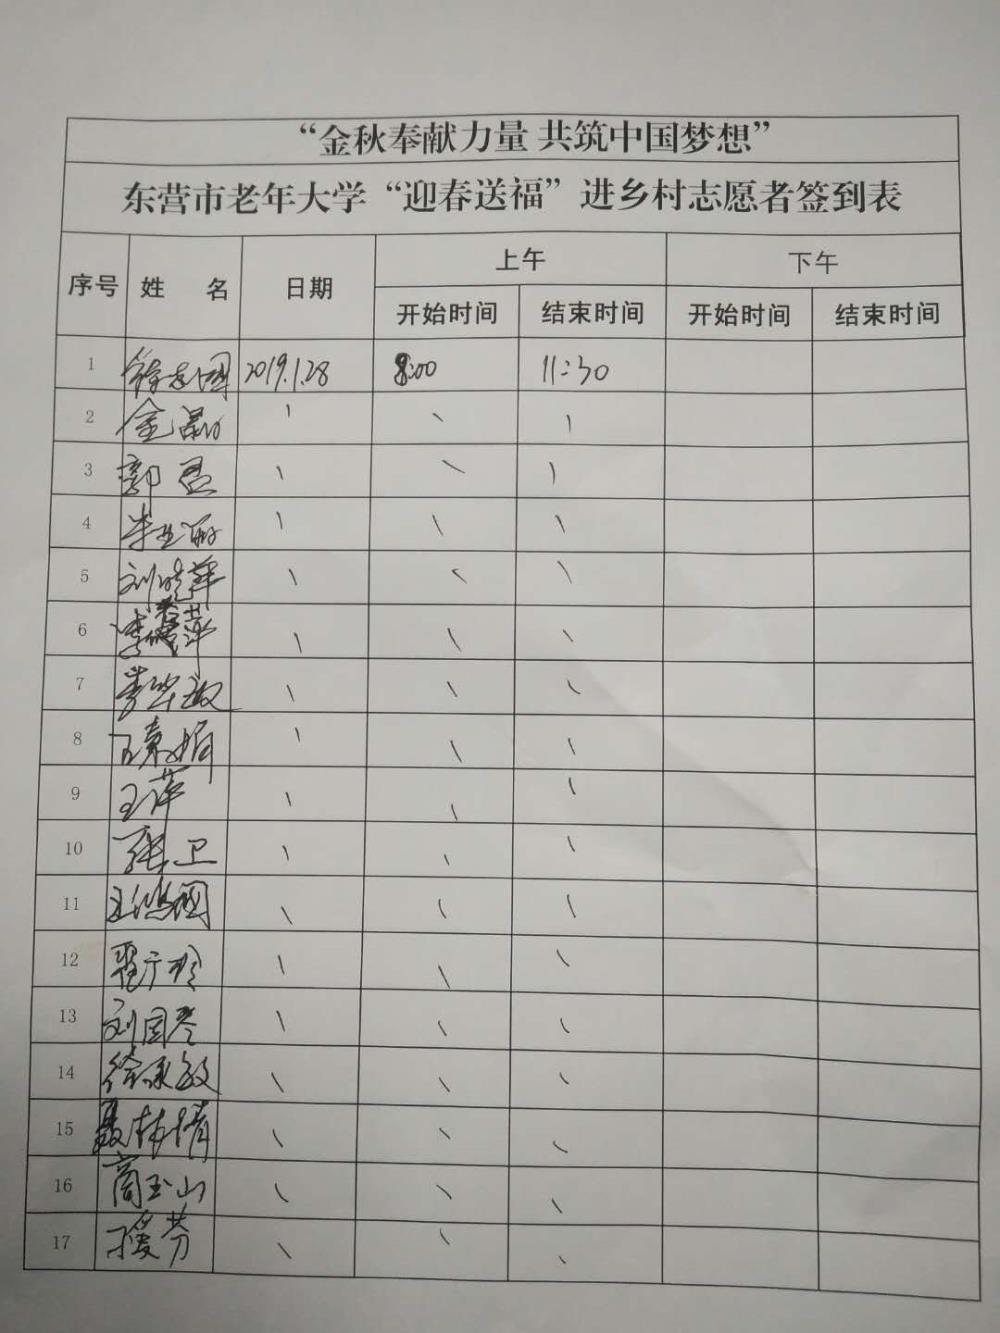 “金秋奉献力量 共筑中国梦想”
东营市老年大学“迎春送福”进乡村志愿者签到表
序号 姓 名 日期 上午 下午
开始时间 结束时间 开始时间 结束时间
1 徐志国 2019.1.28 8:00 11:30
2 金
3 郭
4
5 刘晓萍
6 李 萍
7 李华敏
8 王素娟
9 王萍
10 张卫
11 王鸿国
12 翟广玲
13 刘国荣
14 徐承敏
15 聂梅倩
16 商玉山
17 爱芬